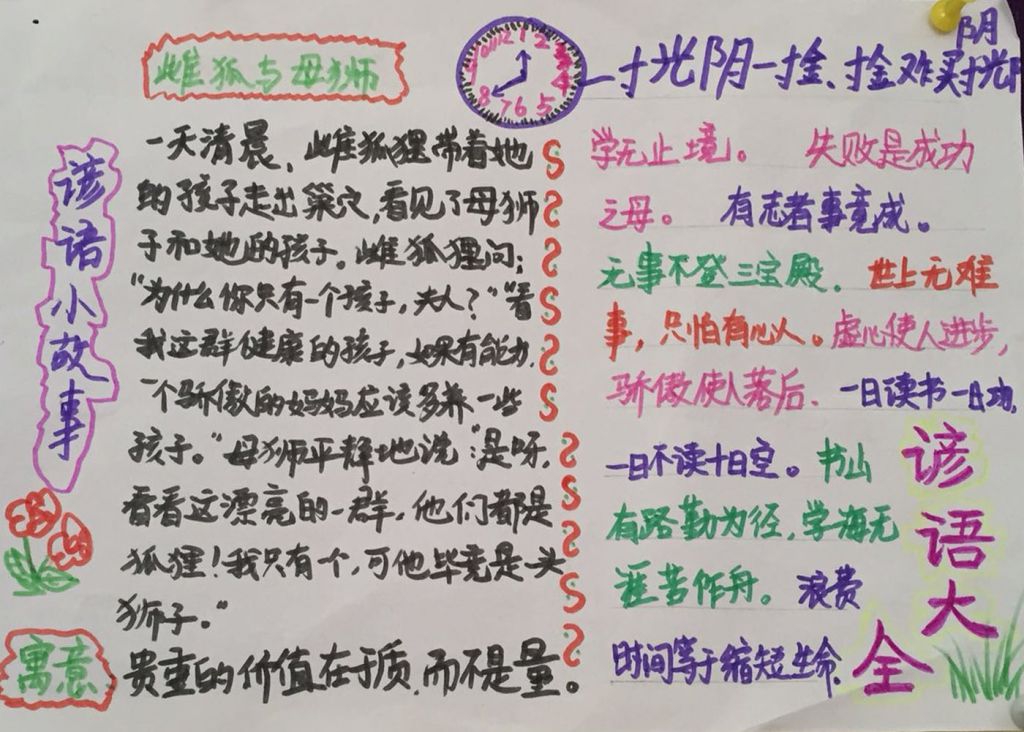 雌狐与母狮
谚语小故事
一天清晨，雌狐狸带着她
的孩子走出巢穴，看见了母狮
子和她的孩子。雌狐狸问：
“为什么你只有一个孩子，夫人？”“看
我这群健康的孩子，如果有能力，
一个骄傲的妈妈应该多养一些
孩子。”母狮平静地说：“是呀，
看看这漂亮的一群，他们都是
狐狸！我只有一个，可他毕竟是一头
狮子。”
寓意
贵重的价值在于质，而不是量。
12 1 2 3 4 5 6 7 8 9 10 11
一寸光阴一寸金，寸金难买寸光阴
学无止境。 失败是成功
之母。 有志者事竟成。
无事不登三宝殿． 世上无难
事，只怕有心人。虚心使人进步，
骄傲使人落后． 一日读书一日功，
一日不读十日空。书山
有路勤为径，学海无
涯苦作舟。 浪费
时间等于缩短生命．
谚语大全